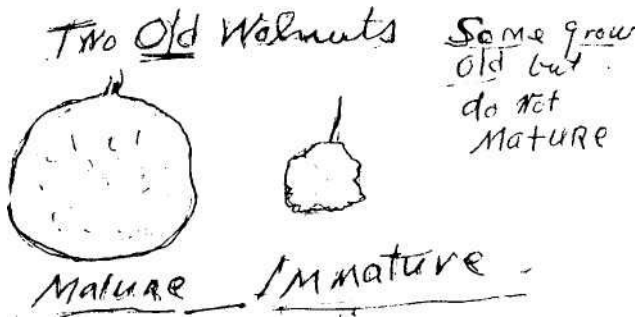 Two Old Walnuts
Some grow
Old but
do Not
Mature
Mature — Immature